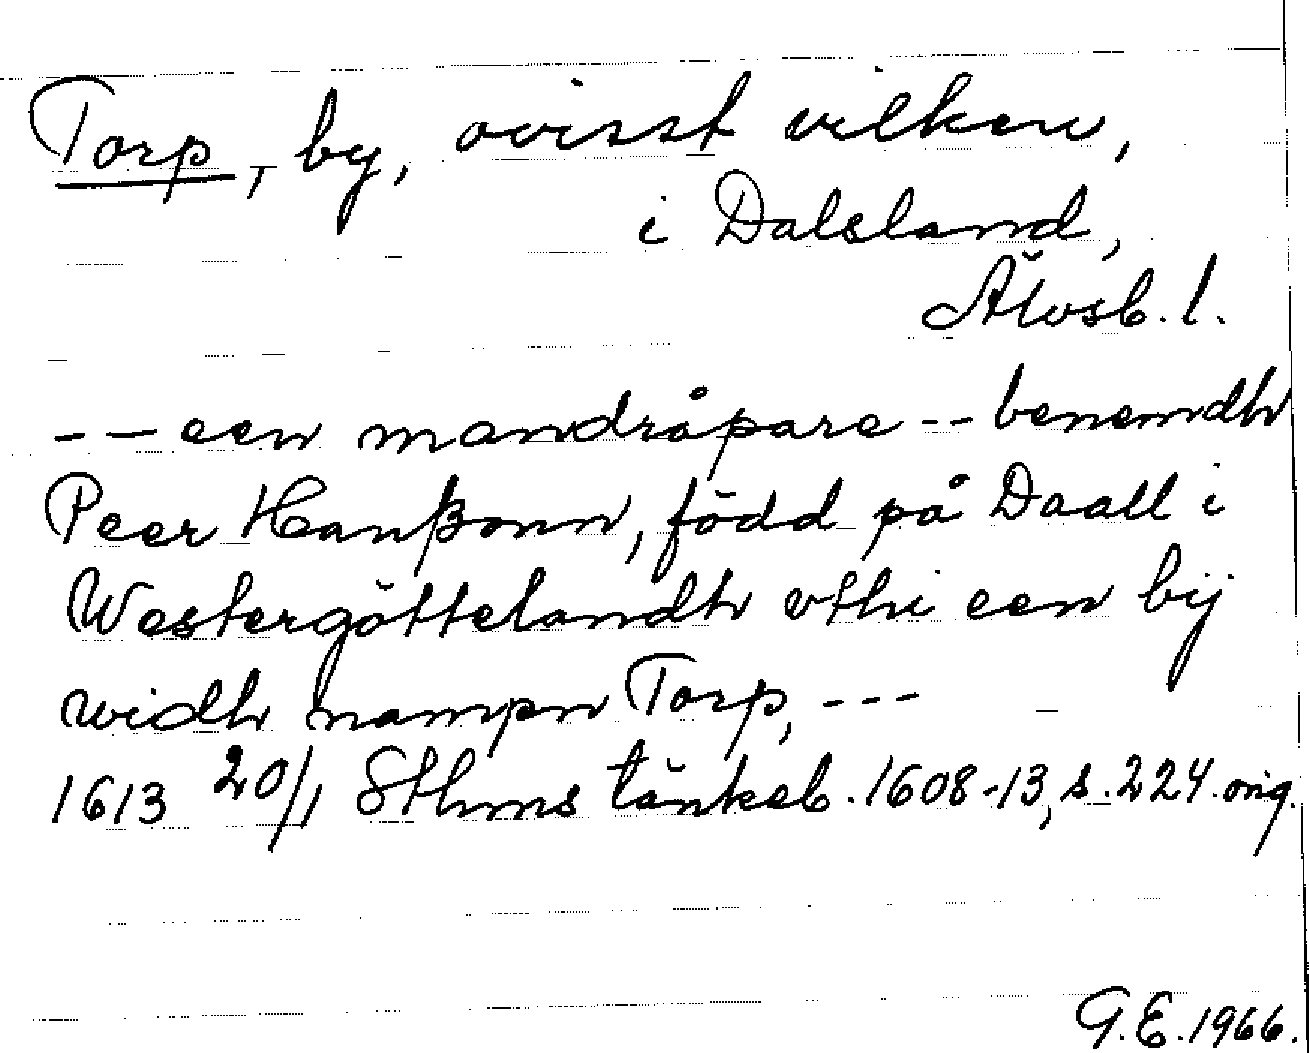 Torp, by, ovisst vilken,
i Dalsland,
Älvsb. l.
-- een mandråpare -- benemdh
Peer Hanßonn, född på Daall i
Westergöttelandh vthi een bij
widh nampn Torp, ---
1613 20/1 Sthms tänkeb. 1608-13, s. 224. orig.
G.E. 1966.